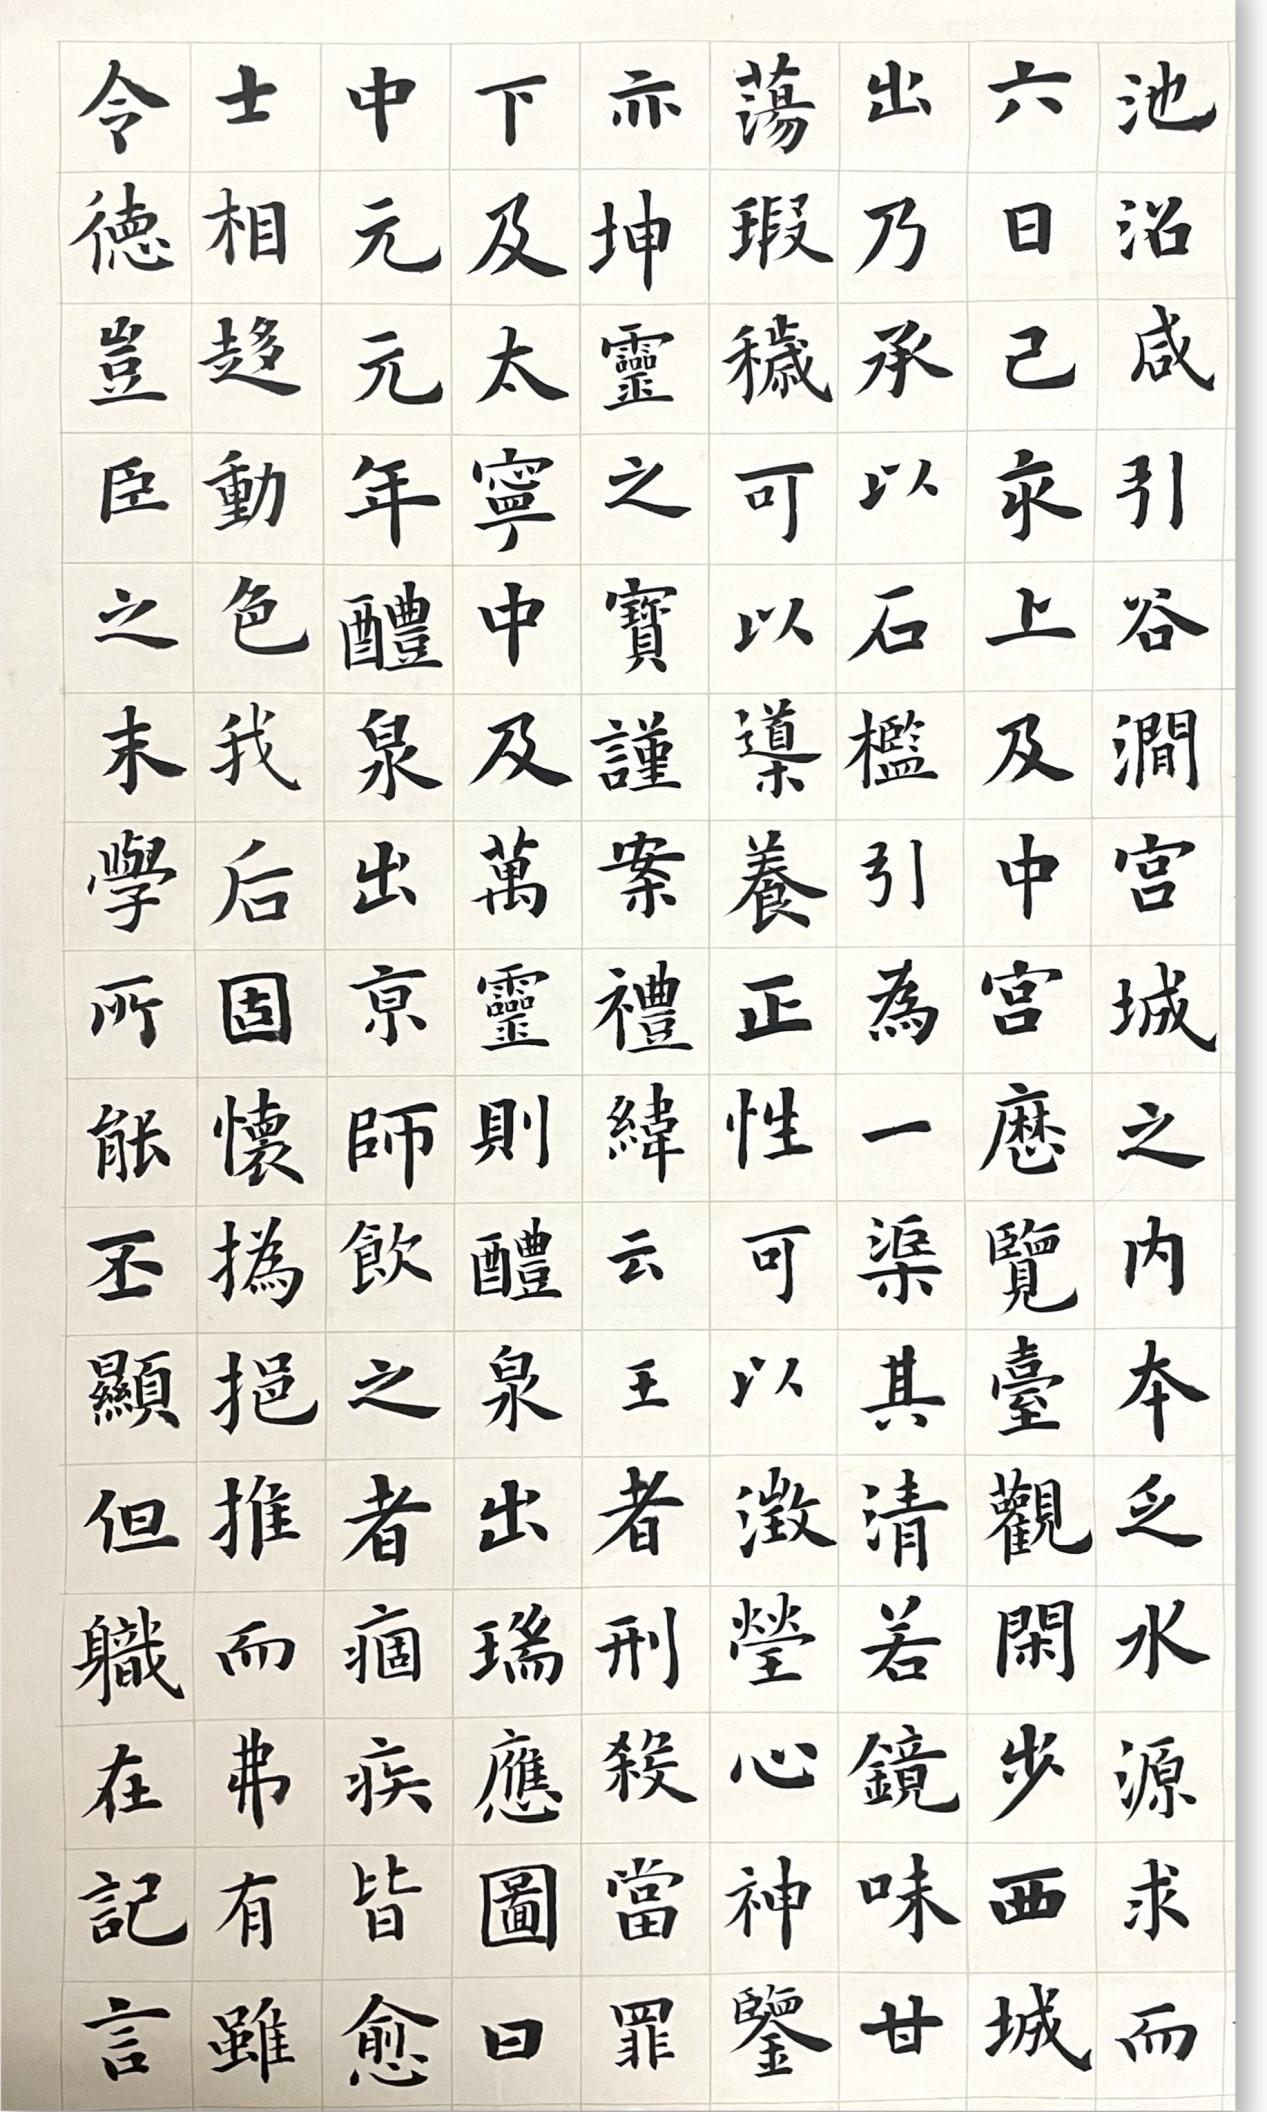 池沼咸引谷澗宮城之内本乏水源求而
六日己亥上及中宮歷覽臺觀閑步西城
出乃承以石檻引為一渠其清若鏡味甘
蕩瑕穢可以導養正性可以澂瑩心神鑒
亦坤靈之寶謹案禮緯云王者刑殺當罪
下及太寧中及萬靈則醴泉出瑞應圖曰
中元元年醴泉出京師飲之者痼疾皆愈
士相趍動色我后固懷撝挹推而弗有雖
令德豈臣之末學所能丕顯但職在記言